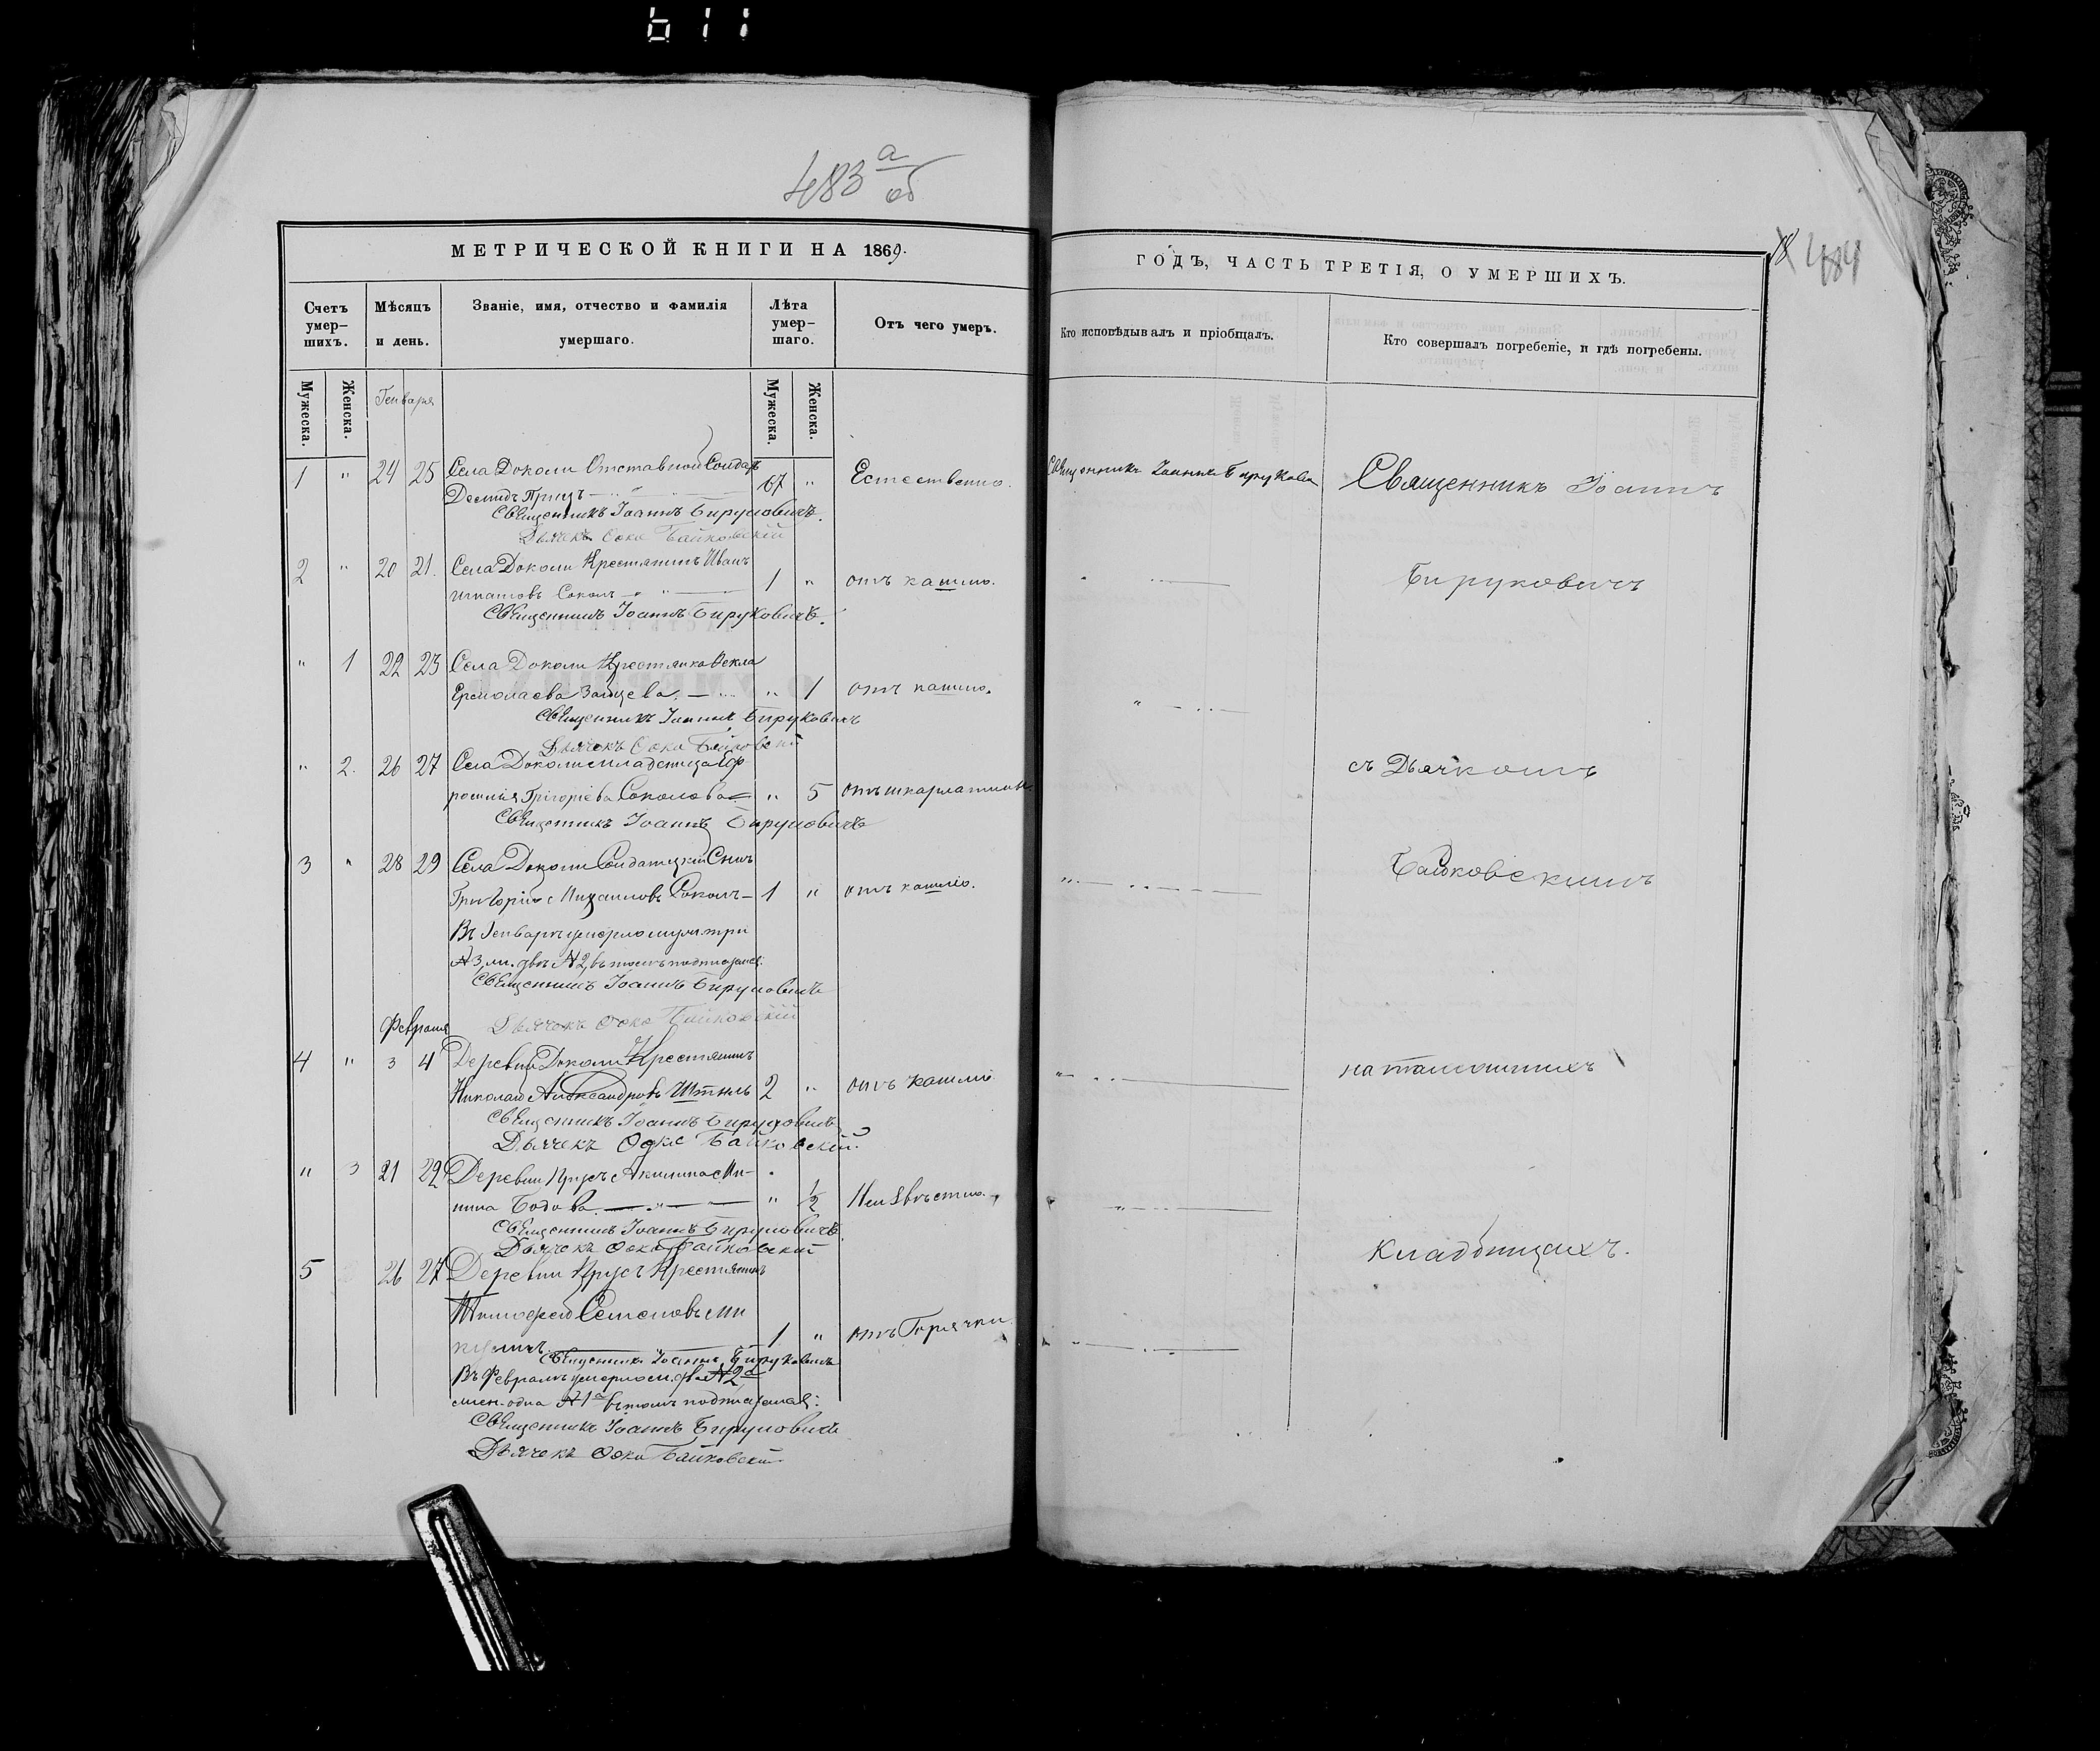 611
483 а/об
МЕТРИЧЕСКОЙ КНИГИ НА 1869.
ГОДЪ, ЧАСТЬ ТРЕТІЯ, О УМЕРШИХЪ.
18 484
Счетъ умер-шихъ.
Мѣсяцъ и день.
Званіе, имя, отчество и фамилія умершаго.
Лѣта умер-шаго.
Отъ чего умеръ.
Кто исповѣдывалъ и пріобщалъ.
Кто совершалъ погребеніе, и гдѣ погребены.
Мужеска.
Женска.
Мужеска.
Женска.
Генваря
1 " 24 25 Села Доколи Отставной Солдатъ
Демидъ Грицъ 67 " Естественно. Священникъ Іоаннъ Бируковичъ Священникъ Іоаннъ
Священникъ Іоаннъ Бируковичъ.
Дьячекъ Фока Байковскій
2 " 20 21. Села Доколи Крестьянинъ Иванъ
Игнатовъ Соколъ 1 " отъ кашлю. Бируковичъ
Священникъ Іоаннъ Бируковичъ.
" 1 22 23 Села Доколи Крестьянка Фекла
Ермолаева Зайцева " 1 отъ кашлю.
Священникъ Іоаннъ Бируковичъ
Дьячекъ Фока Байковскій
" 2. 26 27 Села Доколи младеница Еф
росинія Григоріева Соколова " 5 отъ шкарлатины съ Дьячкомъ
Священникъ Іоаннъ Бируковичъ
3 " 28 29 Села Доколи Солдатскій Сынъ
Григорій Михаиловъ Соколъ 1 " отъ кашлю. Байковскимъ
Въ Генварѣ умерло муж. три
№3, жен. двѣ №2, въ томъ подписуемся:
Священникъ Іоаннъ Бируковичъ
Дьячекъ Фока Байковскій
Февраля
4 " 3 4 Деревни Доколи Крестьянинъ
Николай Александровъ Штыль 2 " отъ кашлю на тамошнихъ
Священникъ Іоаннъ Бируковичъ
Дьячекъ Фока Байковскій.
" 3 21 22 Деревни Акилина Ми-
нина Бодова " 1/2 Неизвѣстно.
Священникъ Іоаннъ Бируковичъ
Дьячекъ Фока Байковскій
кладбищахъ.
5 26 27 Деревни Крестьянинъ
Тимофей Семеновъ
1 " отъ Горячки
Священникъ Іоаннъ Бируковичъ
Въ Февралѣ умерло м. два №2
жен. одна №1 въ томъ подписуемся:
Священникъ Іоаннъ Бируковичъ
Дьячекъ Фока Байковскій